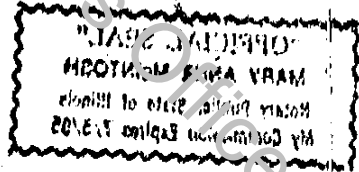 "OFFICIAL SEAL"
MARY ANN McINTOSH
Notary Public, State of Illinois
My Commission Expires 7/3/05
Office